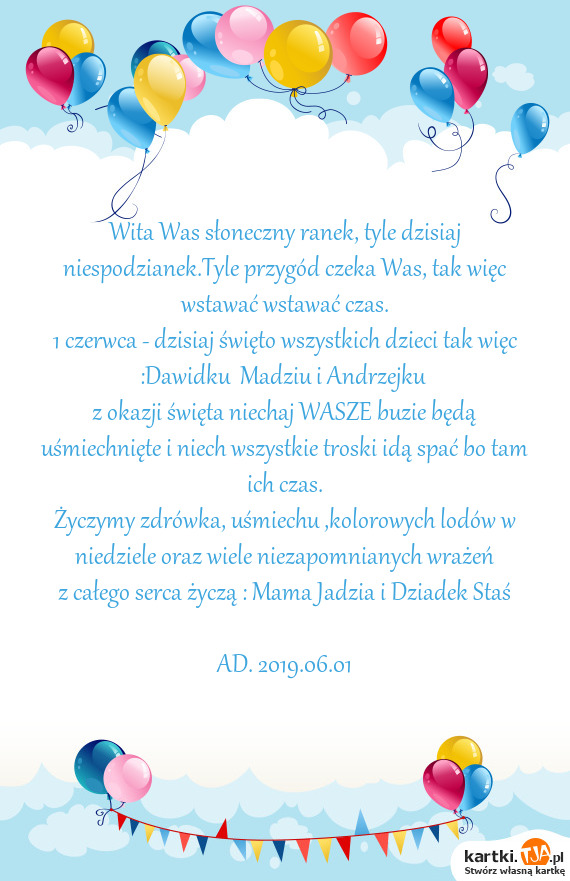 Wita Was słoneczny ranek, tyle dzisiaj
niespodzianek.Tyle przygód czeka Was, tak więc
wstawać wstawać czas.
1 czerwca - dzisiaj święto wszystkich dzieci tak więc
:Dawidku  Madziu i Andrzejku
z okazji święta niechaj WASZE buzie będą
uśmiechnięte i niech wszystkie troski idą spać bo tam
ich czas.
Życzymy zdrówka, uśmiechu ,kolorowych lodów w
niedziele oraz wiele niezapomnianych wrażeń
z całego serca życzą : Mama Jadzia i Dziadek Staś
AD. 2019.06.01
kartki.TJA.pl
Stwórz własną kartkę